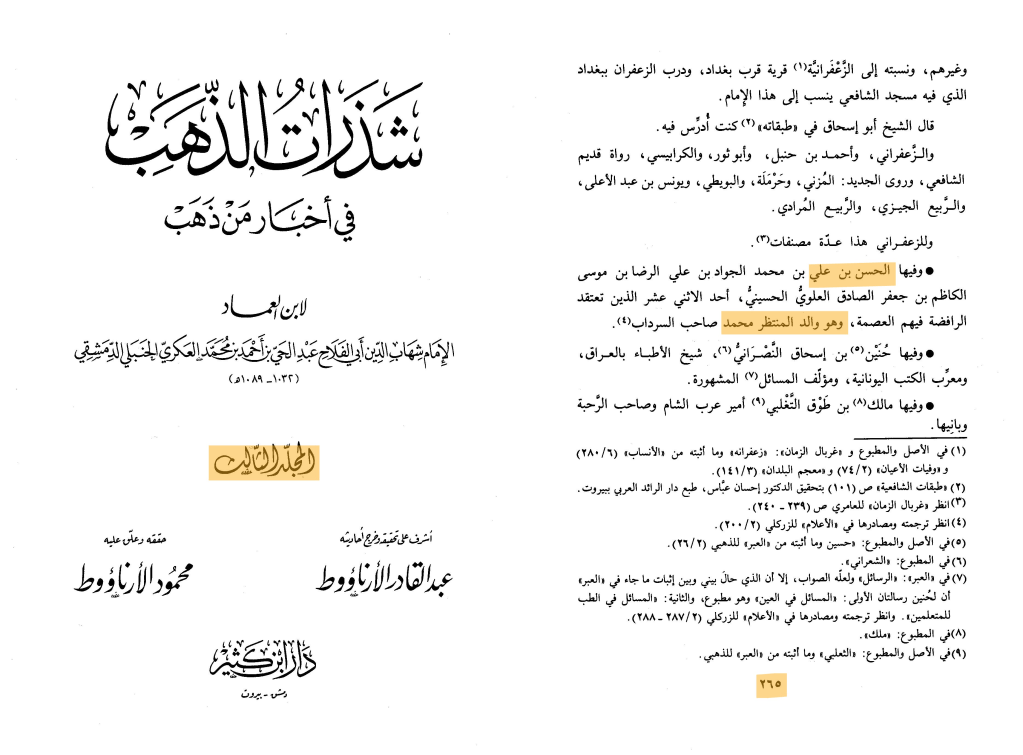 شَذَرَاتُ الذَّهَبْ
في أخبار مَنْ ذَهَبْ
لابن العماد
الإمام شهاب الدين أبي الفلاح عبد الحي بن أحمد بن محمد العكري الحنبلي الدمشقي
(١٠٣٢ - ١٠٨٩ هـ)
المجلّد الثّالث
أشرف على تحقيقه وخرج أحاديثه
عبد القادر الأرناؤوط
حققه وعلّق عليه
محمود الأرناؤوط
دار ابن كثير
دمشق - بيروت
وغيرهم، ونسبته إلى الزَّعْفَرانيَّة(١) قرية قرب بغداد، ودرب الزعفران ببغداد
الذي فيه مسجد الشافعي ينسب إلى هذا الإِمام.
قال الشيخ أبو إسحاق في «طبقاته»(٢) كنت أُدرِّس فيه.
والـزَّعفراني، وأحمـد بن حنبل، وأبو ثور، والكرابيسي، رواة قديم
الشافعي، وروى الجديد: المُزني، وحَرْمَلَة، والبويطي، ويونس بن عبد الأعلى،
والـرَّبيع الجيـزي، والرَّبيـع المُرادي.
وللزعفـراني هذا عـدّة مصنفات(٣).
● وفيها الحسن بن علي بن محمد الجواد بن علي الرضا بن موسى
الكاظم بن جعفر الصادق العلويُّ الحسينيُّ، أحد الاثني عشر الذين تعتقد
الرافضة فيهم العصمة، وهو والد المنتظر محمد صاحب السرداب(٤).
● وفيها حُنَيْن(٥) بن إسحاق النَّصْرَانيُّ(٦)، شيخ الأطباء بالعراق،
ومعرِّب الكتب اليونانية، ومؤلّف المسائل(٧) المشهورة.
● وفيها مالك(٨) بن طَوْق التَّغْلبي(٩) أمير عرب الشام وصاحب الرَّحبة
وبانِيها.
(١) في الأصل والمطبوع و «غربال الزمان»: «زعفرانه» وما أثبته من «الأنساب» (٢٨٠/٦)
و «وفيات الأعيان» (٧٤/٢) و «معجم البلدان» (١٤١/٣).
(٢) «طبقات الشافعية» ص (١٠١) بتحقيق الدكتور إحسان عبَّاس، طبع دار الرائد العربي ببيروت.
(٣) انظر «غربال الزمان» للعامري ص (٢٣٩ - ٢٤٠).
(٤) انظر ترجمته ومصادرها في «الأعلام» للزركلي (٢٠٠/٢).
(٥) في الأصل والمطبوع: «حسين وما أثبته من «العبر» للذهبي (٢٦/٢).
(٦) في المطبوع: «الشعراني».
(٧) في «العبر»: «الرسائل» ولعلّه الصواب، إلا أن الذي حالَ بيني وبين إثبات ما جاء في «العبر»
أن لحُنين رسالتان الأولى: «المسائل في العين» وهو مطبوع، والثانية: «المسائل في الطب
للمتعلمين». وانظر ترجمته ومصادرها في «الأعلام» للزركلي (٢٨٧/٢ - ٢٨٨).
(٨) في المطبوع: «ملك».
(٩) في الأصل والمطبوع: «الثعلبي» وما أثبته من «العبر» للذهبي.
٢٦٥